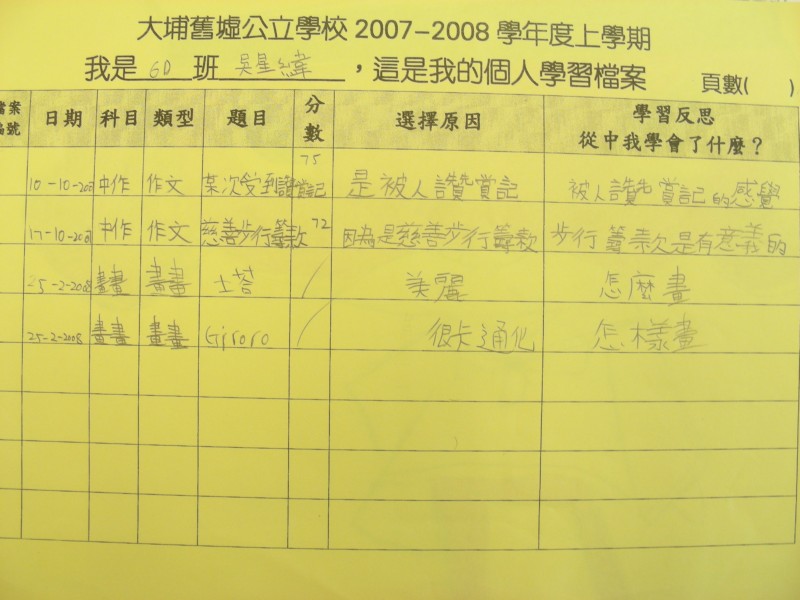 大埔舊墟公立學校 2007-2008 學年度上學期
我是 6D 班 吳星緯 ,這是我的個人學習檔案 頁數( )
檔案編號 日期 科目 類型 題目 分數 選擇原因 學習反思 從中我學會了什麼?
10-10-2007 中作 作文 某次受到讚賞記 75 是被人讚賞記 被人讚賞記的感覺
17-10-2007 中作 作文 慈善步行籌款 72 因為是慈善步行籌款 步行籌款是有意義的
25-2-2008 畫畫 畫畫 士答 / 美麗 怎麼畫
25-2-2008 畫畫 畫畫 Giroro / 很卡通化 怎樣畫